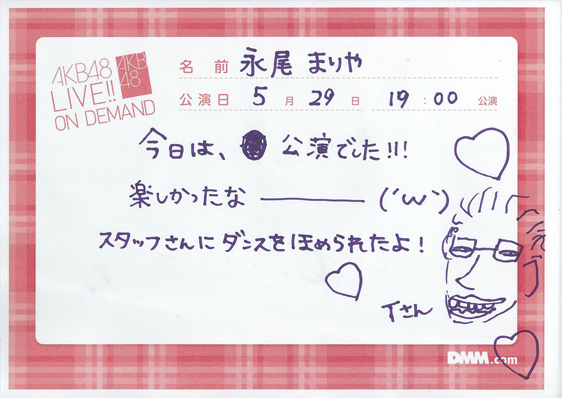 AKB48
LIVE!!
ON DEMAND
AKB
48
名 前 永尾 まりや
公演日 5 月 29 日 19:00 公演
今日は、 公演でした!!!
楽しかったな―――― (´ω`)
スタッフさんにダンスをほめられたよ!
Tさん
DMM.com